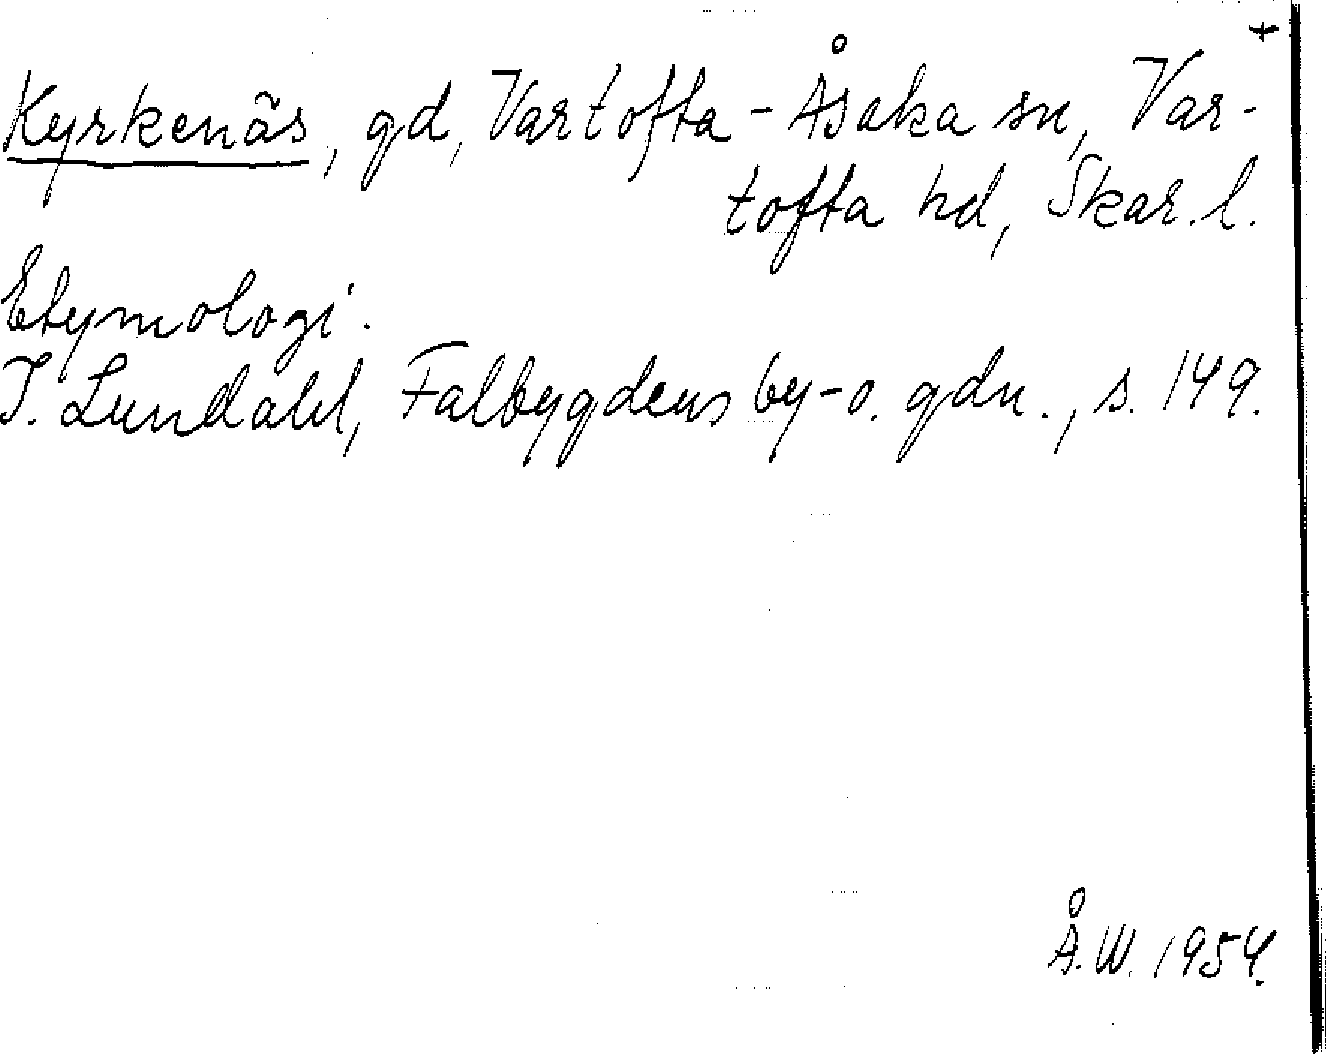 +
Kyrkenäs, gd, Vartofta-Åsaka sn, Var-
tofta hd, Skar. l.
Etymologi.
I. Lundahl, Falbygdens by-o. gdn., s. 149.
Å.W. 1954.